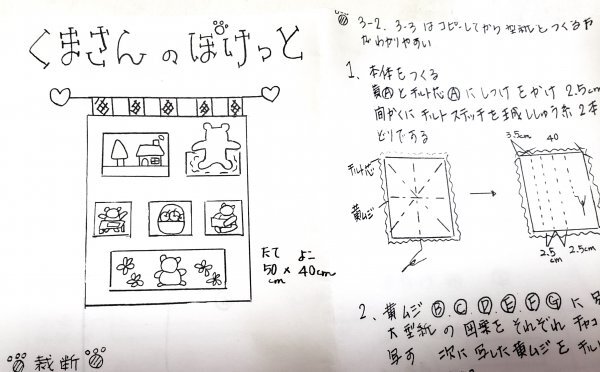 くまさんのぽけっと
たて よこ
50 × 40cm
cm
裁断
3-2、3-3 はコピーしてから型紙をつくる方
がわかりやすい
1、本体をつくる
黄Ⓐとキルト芯Ⓐにしつけをかけ 2.5cm
間かくにキルトステッチを ししゅう糸2本
どりでする
キルト芯
黄ムジ
3.5cm 40
2.5 2.5cm
cm
2、黄ムジ Ⓑ、Ⓒ、Ⓓ、Ⓔ、Ⓕ、Ⓖ に
大型紙の図案をそれぞれチャコ
写す 次に写した黄ムジを キルト